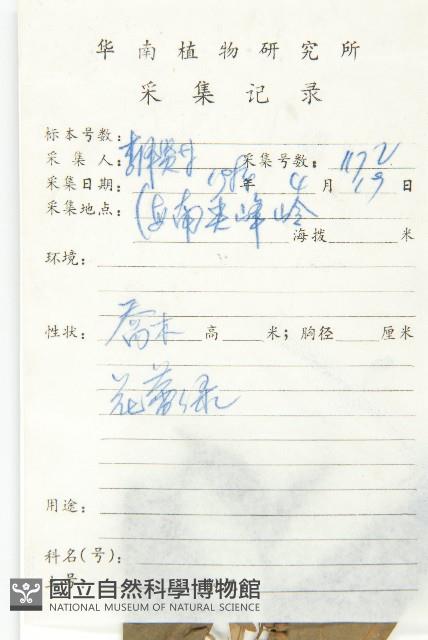 华南植物研究所
采集记录
标本号数:
采集人: 采集号数: 1172
采集日期: 198 年 4 月 19 日
采集地点: 海南尖峰岭
海拨 米
环境:
性状: 喬木 高 米; 胸径 厘米
花蕾绿
用途:
科名(号):
國立自然科學博物館
NATIONAL MUSEUM OF NATURAL SCIENCE